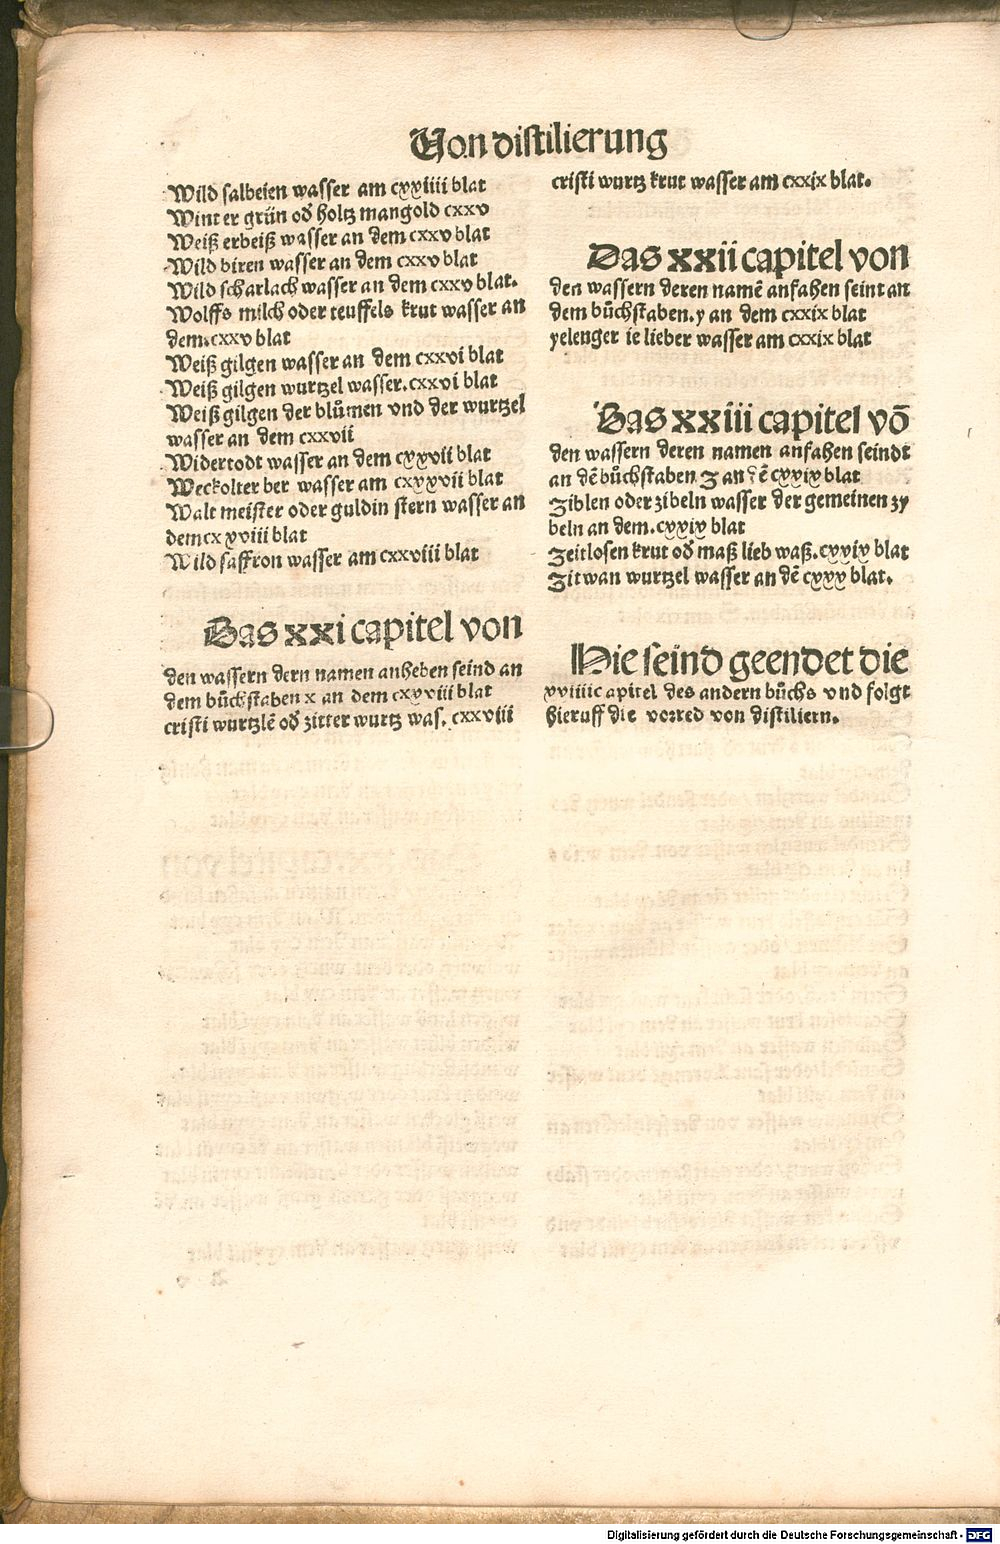 Von distilierung
Wild salbeien wasser am cxxiiii blat
Wint er grün od̄ holtz mangold cxxv
Weiß erbeiß wasser an dem cxxv blat
Wild biren wasser an dem cxxv blat
Wild scharlach wasser an dem cxxv blat.
Wolffs milch oder teuffels krut wasser an
dem.cxxv blat
Weiß gilgen wasser an dem cxxvi blat
Weiß gilgen wurtzel wasser.cxxvi blat
Weiß gilgen der blůmen vnd der wurtzel
wasser an dem cxxvii
Widertodt wasser an dem cxxvii blat
Weckolter ber wasser am cxxxvii blat
Walt meister oder guldin stern wasser an
dem cx xviii blat
Wild saffron wasser am cxxviii blat
Das xxi capitel von
den wassern dern namen anheben seind an
dem bůchstaben x an dem cxxviii blat
cristi wurtzlē od̄ zitter wurtz was. cxxviii
cristi wurtz krut wasser am cxxix blat.
Das xxii capitel von
den wassern deren namē anfahen seint an
dem bůchstaben.y an dem cxxix blat
yelenger ie lieber wasser am cxxix blat
Das xxiii capitel vō
den wassern deren namen anfahen seindt
an dē bůchstaben Z an dē cxxix blat
Ziblen oder zibeln wasser der gemeinen zy
beln an dem.cxxix blat
Zeitlosen krut od̄ maß lieb waß.cxxix blat
Zitwan wurtzel wasser an dē cxxx blat.
Hie seind geendet die
xviiii capitel des andern bůchs vnd folgt
hieruff die vorred von distiliern.
Digitalisierung gefördert durch die Deutsche Forschungsgemeinschaft - DFG